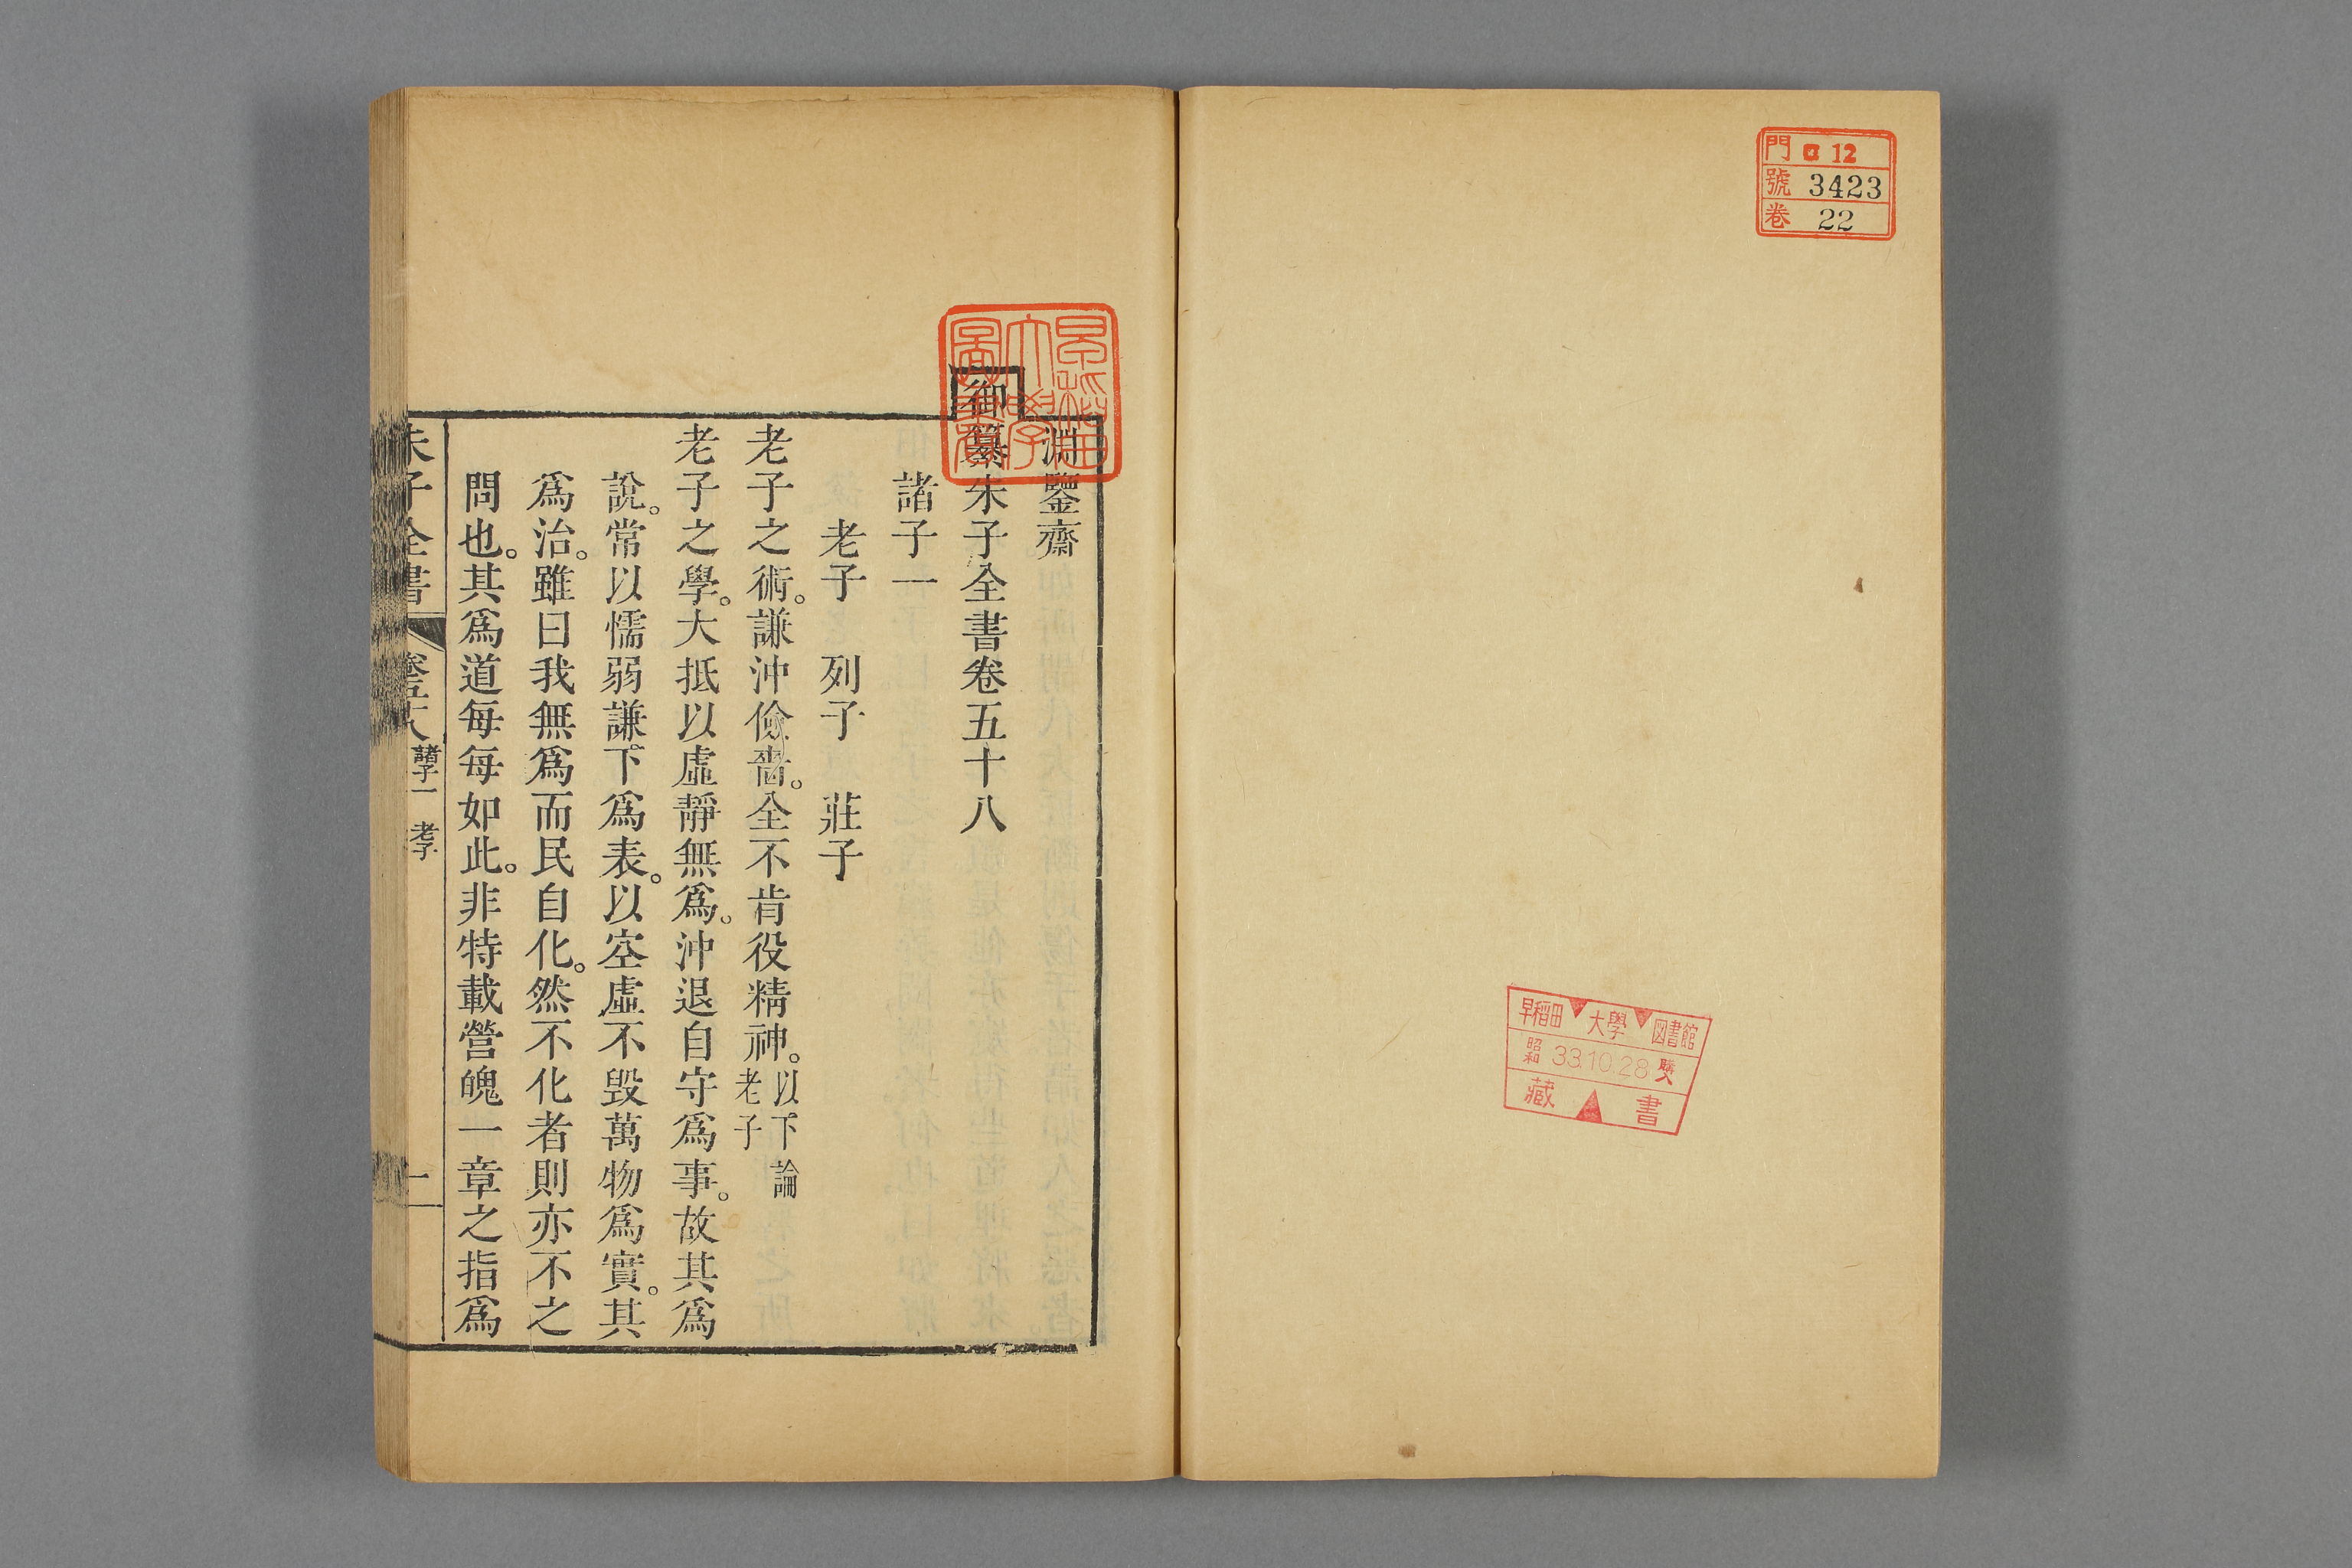 門 ロ 12
號 3423
卷 22
早稲田 大學 図書館
昭和 33.10.28 購入
藏書
淵鑒齋
御纂朱子全書卷五十八
諸子一
老子 列子 莊子
老子之術。謙沖儉嗇。全不肯役精神。以下論老子
老子之學。大抵以虛靜無爲。沖退自守爲事。故其爲
說。常以懦弱謙下爲表。以空虛不毀萬物爲實。其
爲治。雖曰我無爲而民自化。然不化者則亦不之
問也。其爲道每每如此。非特載營魄一章之指爲
朱子全書 卷五十八 諸子一 老子 一